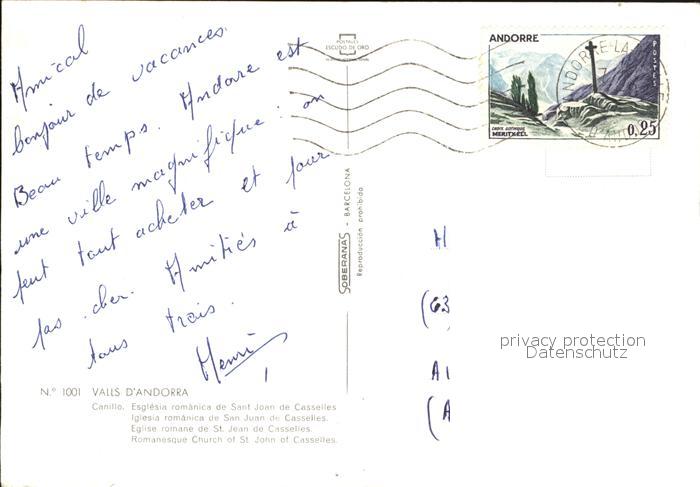 Amical
bonjour de vacances.
Beau temps. Andore est
une ville magnifique. on
peut tout acheter et pour
pas cher. Amitiés à
tous trois.
Henri
POSTALES
ESCUDO DE ORO
ANDORRE
POSTES
CROIX GOTHIQUE
MERITXELL
0,25
ANDORRE-LA
SOBERANAS - BARCELONA
Reproducción prohibida
H
(63
A1
(A
privacy protection
Datenschutz
N.º 1001 VALLS D'ANDORRA
Canillo. Església romànica de Sant Joan de Casselles
Iglesia románica de San Juan de Casselles.
Eglise romane de St. Jean de Casselles.
Romanesque Church of St. John of Casselles.